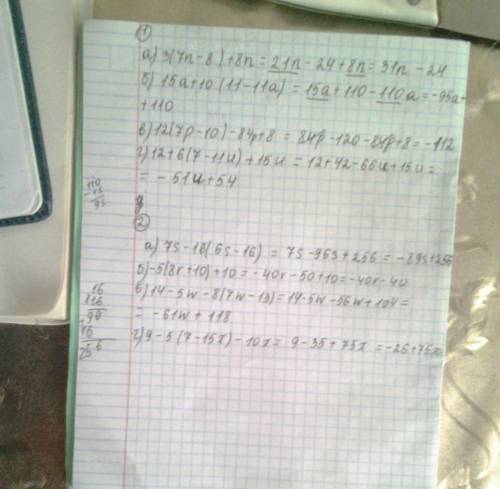 1
а) 3(7n-8)+8n = 21n - 24 + 8n = 31n - 24
б) 15a+10(11-11a) = 15a+110-110a = -95a+
+110
в) 12(7p-10)-84p+8 = 84p-120-84p+8 = -112
г) 12+6(7-11u)+15u = 12+42-66u+15u =
= -51u+54
110
-15
95
2
а) 7s-16(6s-16) = 7s-96s+256 = -89s+256
б) -5(8r+10)+10 = -40r-50+10 = -40r-40
в) 14-5w-8(7w-13) = 14-5w-56w+104 =
= -61w+118
г) 9-5(7-15x)-10x = 9-35+75x = -26+75x
16
16
96
16
256